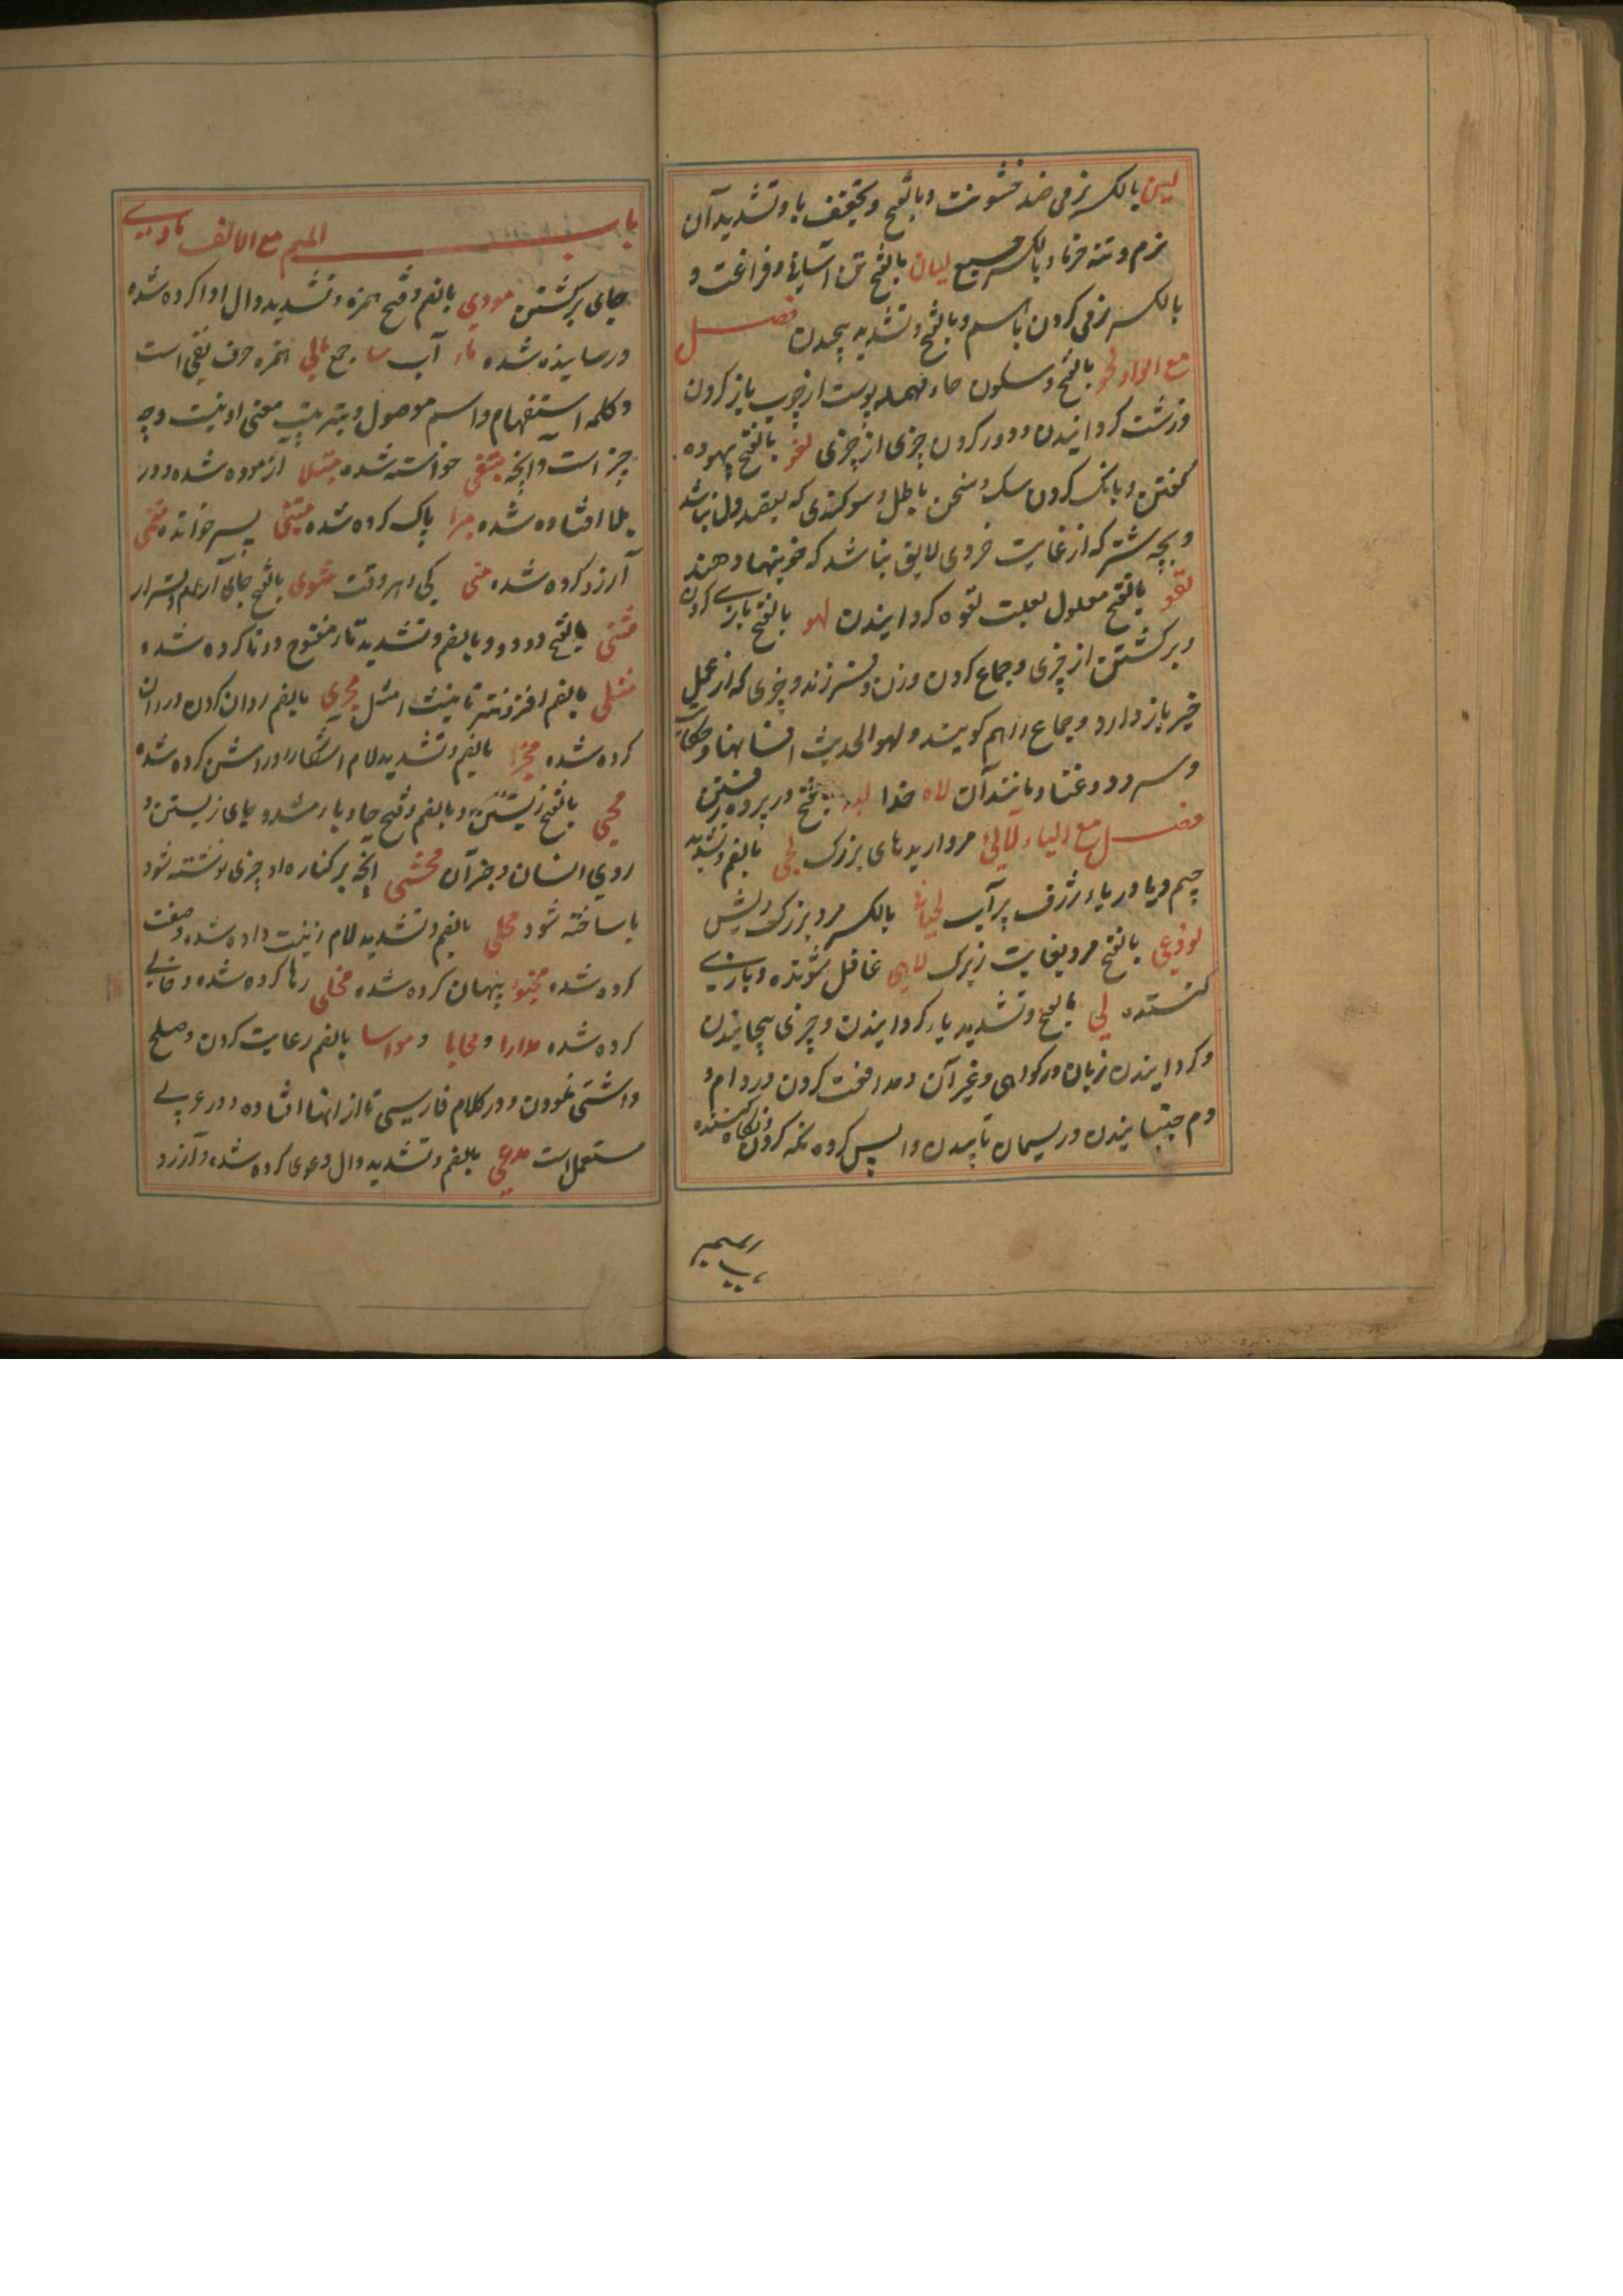 لین بالکسر نرمی ضد خشونت و بالفتح و تخفیف یا و تشدید آن
نرم و تنه خرما و بالکسر جمع لیان بالفتح تن آسانی و فراغت و
بالکسر نرمی کردن باهم و بالفتح و تشدید پیچیدن فصل
مع الواو لحو بالفتح و سکون حاء مهمله پوست از چوب باز کردن
و زشت گردانیدن و دور کردن چیزی از چیزی لغو بالفتح بیهوده
گفتن و بانگ کردن سگ و سخن باطل و سوگندی که بقصد دل نباشد
و بچه شتر که از غایت خردی لایق نباشد که خونبها دهند
لقو بالفتح معلول بعلت لقوه گردانیدن لهو بالفتح بازی کردن
و برگشتن از چیزی و جماع کردن و زن و فرزند و چیزی که از عمل
خیر باز دارد و جماع را هم گویند و لهو الحدیث افسانها و حکایات
و سرود و غنا و مانند آن لاه خدا لیه بفتح در پرده رفتن
فصل مع الیاء لآلئ مرواریدهای بزرگ لجی بالضم و تشدید
جیم و یا دریاء ژرف پر آب لحیانی بالکسر مرد بزرگ ریش
لوذعی بالفتح مرد بغایت زیرک لاهی غافل شونده و بازی
کننده لی بالفتح و تشدید یا گردانیدن و چیزی پیچانیدن
و گردانیدن زبان در گواهی و غیر آن و مدافعت کردن در وام و
دم جنبانیدن و ریسمان تابیدن و اپس کرده نگه کردن و نگاه کننده
باب المیم مع الالف ماوی
جای برگشتن مودی بالضم و فتح همزه و تشدید دال ادا کرده شده
و رسانیده شده ماء آب ما جمع همزه حرف نفی است
و کلمه استفهام و اسم موصول و بترتیب معنی او نیست و چه
چیز است و آنچه مبتغی خواسته شده مبتلا ازموده شده و در
بلا افتاده شده مبرا پاک کرده شده متبنی پسر خوانده متمنی
آرزو کرده شده متی کی و هر وقت مثوی بالفتح جای آرام و قرار
مثنی بالفتح دو دو و بالضم و تشدید تاء مفتوح دوتا کرده شده
مثلی بالضم افزونتر تانیث امثل مجری بالضم روان کردن و روان
کرده شده بالضم و تشدید لام آشکارا و روشن کرده شده
محیی بالفتح زیستن و بالضم و فتح حا و یاء مشدد جای زیستن و
روی انسان و جز آن محشی آنچه بر کناره او چیزی نوشته شود
یا ساخته شود محلی بالضم و تشدید لام زینت داده شده و صفت
کرده شده پنهان کرده شده مخلی رها کرده شده و خالی
کرده شده مدارا و محابا و مواسا بالضم رعایت کردن و صلح
و آشتی نمودن و در کلام فارسی تا از انها افتاده و در عربی
مستعمل است مدعی بالضم و تشدید دال دعوی کرده شده و آرزو